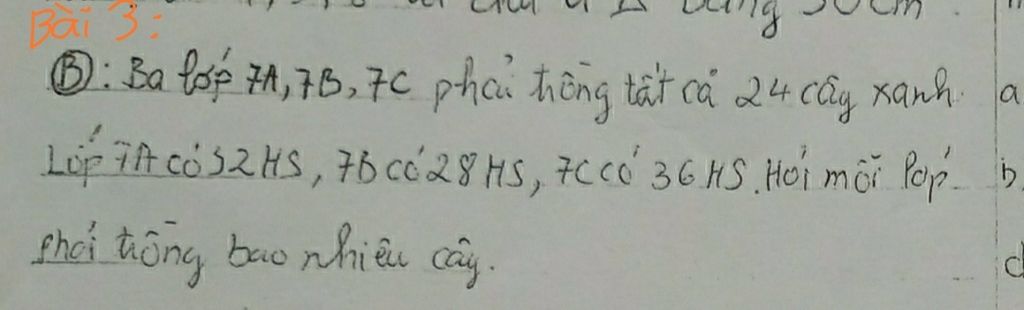 bằng 30cm.
Bài 3:
(B): Ba lớp 7A, 7B, 7C phải trồng tất cả 24 cây xanh. a
Lớp 7A có 32 HS, 7B có 28 HS, 7C có 36 HS. Hỏi mỗi lớp b
phải trồng bao nhiêu cây. d